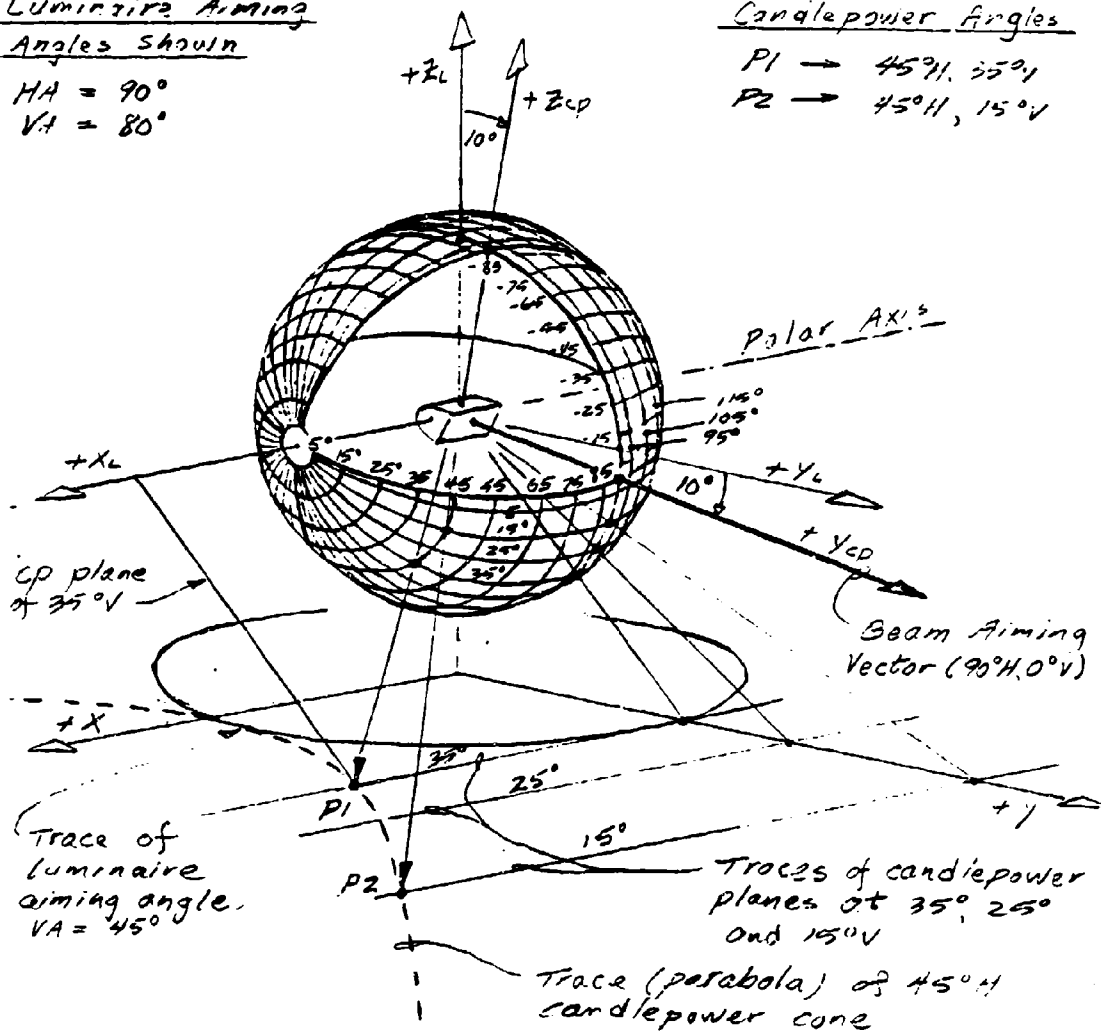 Luminaire Aiming
Angles Shown
HA = 90°
VA = 80°
Candlepower Angles
P1 → 45°H, 35°V
P2 → 45°H, 15°V
+ZL
+Zcp
10°
-85
-75
-65
-55
-45
-35
-25
-15
Polar Axis
115°
105°
95°
+XL
5°
15°
25°
35
45
45
65
75
85
5
15°
25°
35°
10°
+YL
+Ycp
cp plane
of 35°V
Beam Aiming
Vector (90°H,0°V)
+X
35°
P1
25°
+Y
15°
P2
Trace of
luminaire
aiming angle.
VA = 45°
Traces of candlepower
planes at 35°, 25°
and 15°V
Trace (parabola) of 45°H
candlepower cone